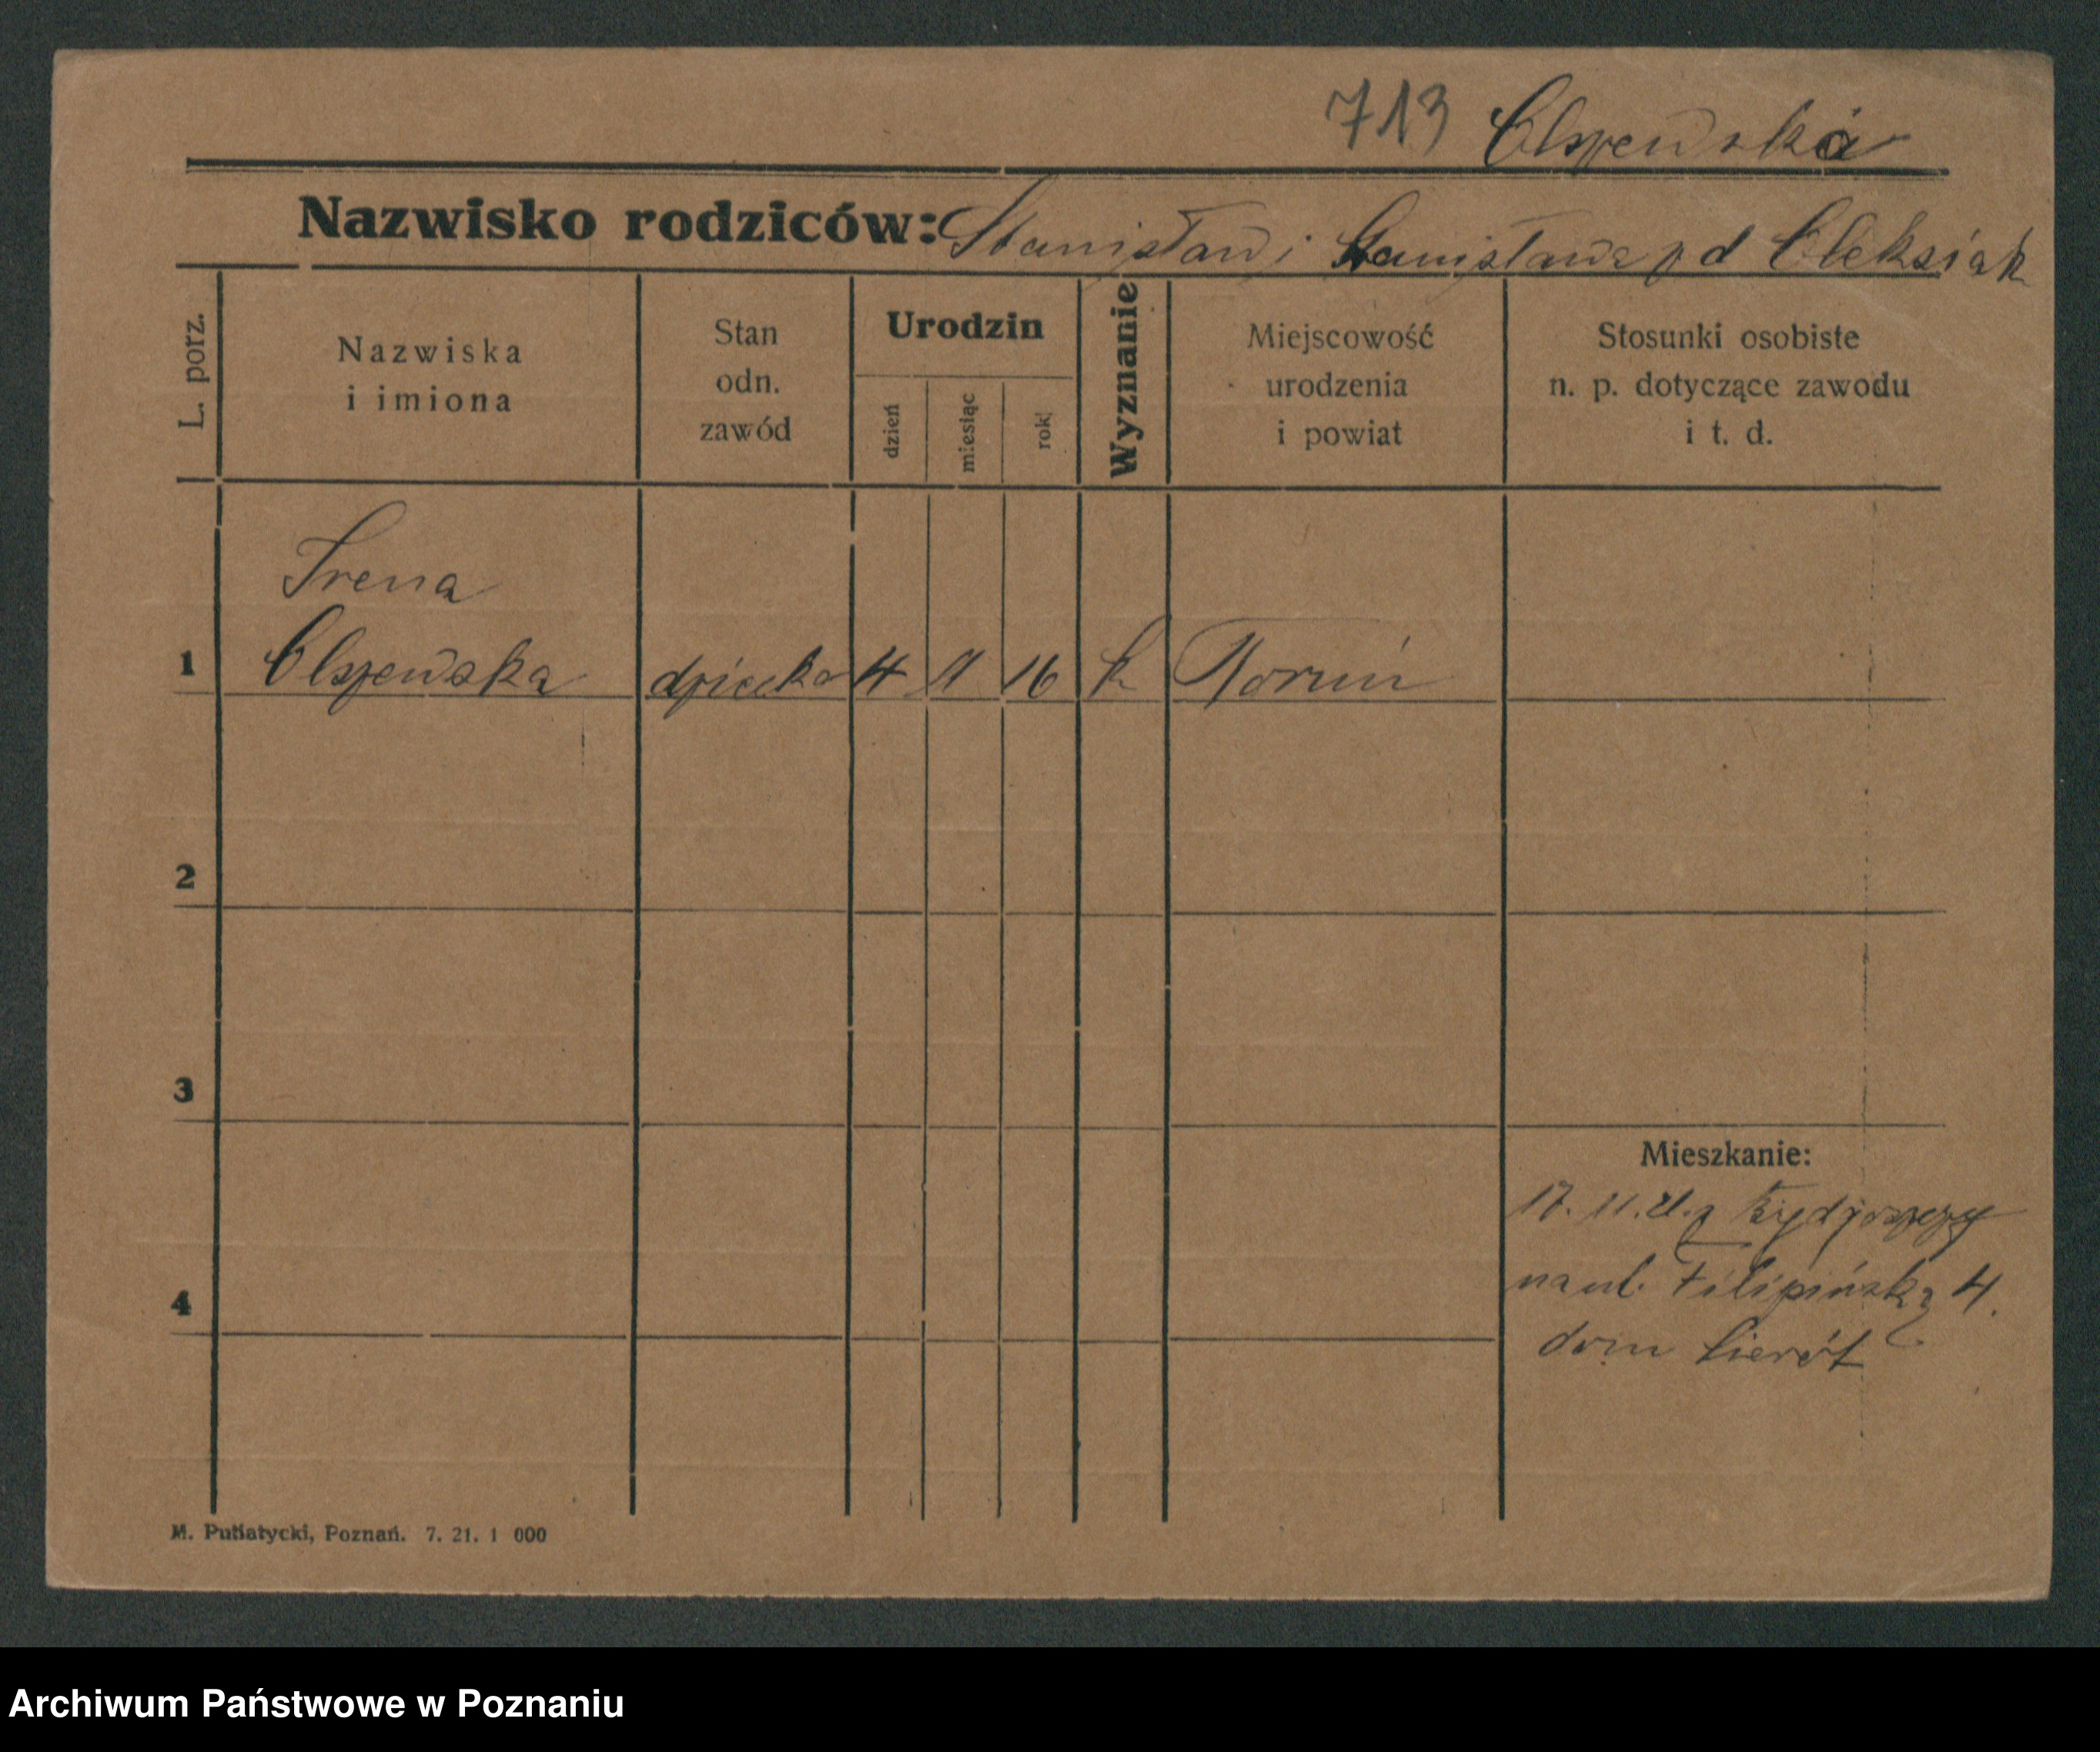 713 Olszewska
Nazwisko rodziców: Stanisław i Stanisława z d Oleksiak
L. porz.
Nazwiska
i imiona
Stan
odn.
zawód
Urodzin
dzień
miesiąc
rok
Wyznanie
Miejscowość
urodzenia
i powiat
Stosunki osobiste
n. p. dotyczące zawodu
i t. d.
Irena
1 Olszewska dziecko 4 9 16 k Toruń
2
3
Mieszkanie:
17. 11. 21. z Bydgoszczy
na ul. Filipińską 4.
4
dom Sierót
M. Putiatycki, Poznań. 7. 21. 1 000
Archiwum Państwowe w Poznaniu